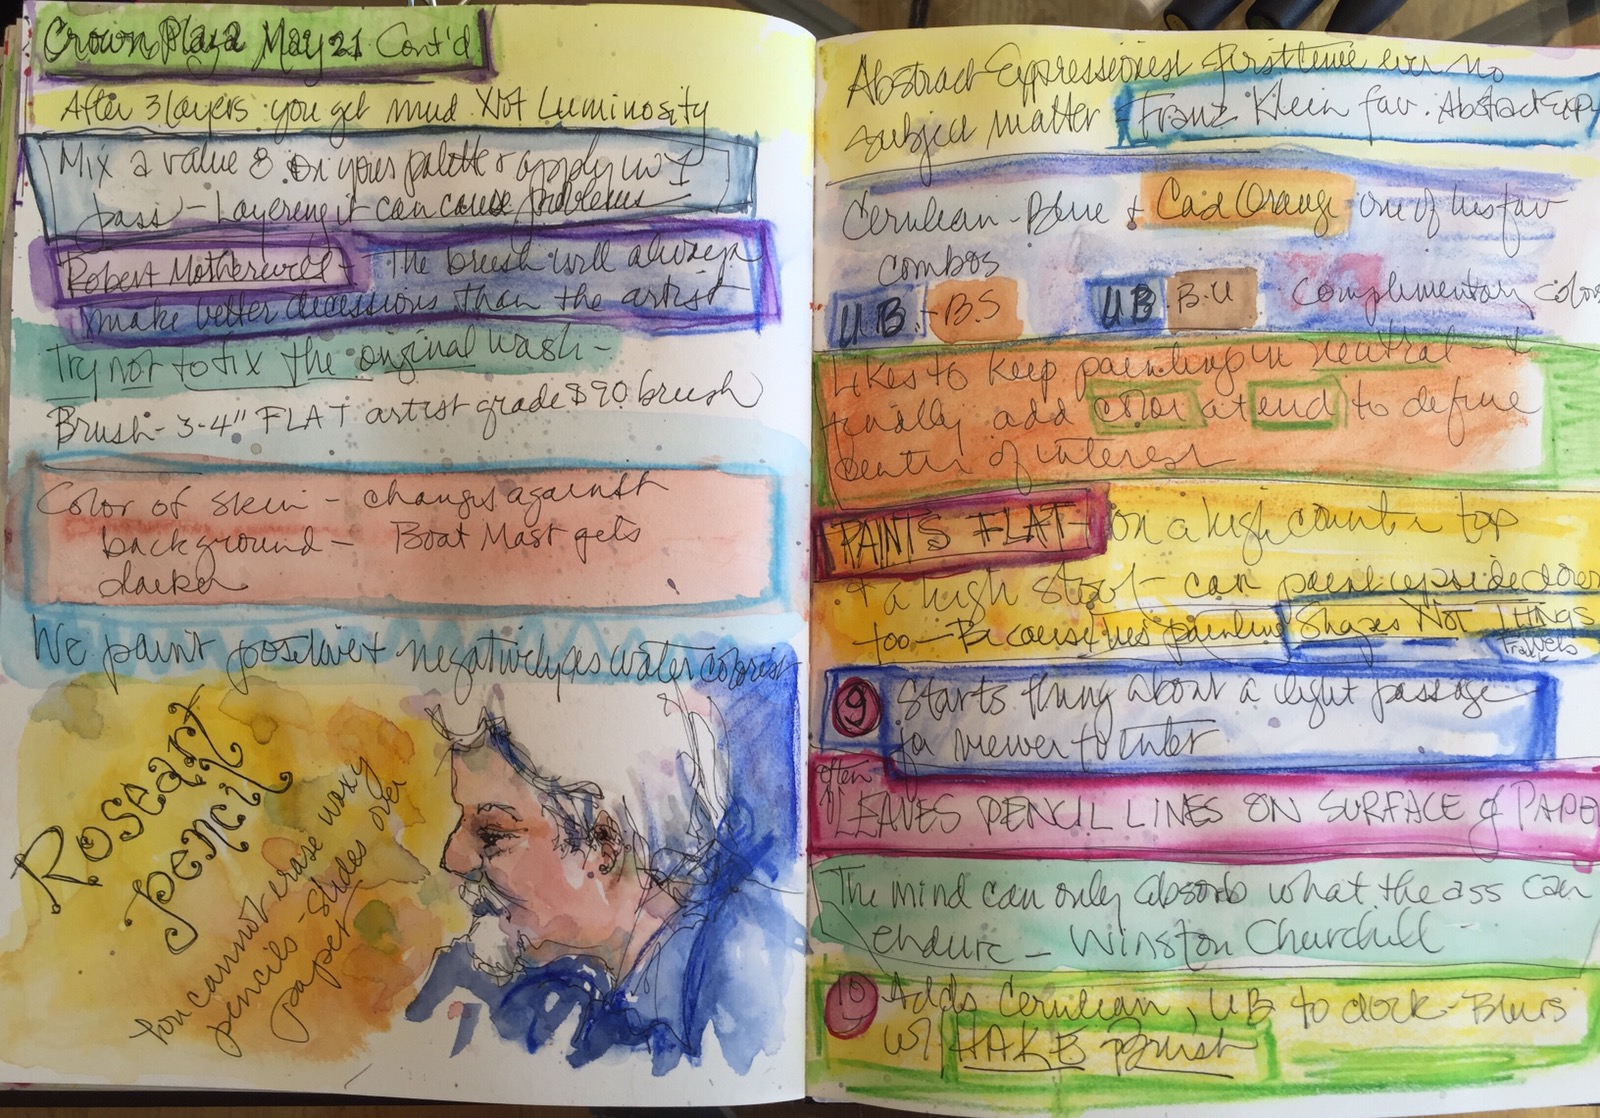 Crown Plaza May 21 Cont'd
After 3 layers you get mud Not Luminosity
Mix a value 8 on your palette & apply in 1
pass - Layering it can cause problems
Robert Motherwell - The brush will always
make better decessions than the artist
Try not to fix the original wash -
Brush - 3-4" FLAT artist grade $90 brush
Color of skin - changes against
background - Boat Mast gets
darker
We paint positive & negatively as water colorist
Roseart
pencil
You cannot erase waxy
pencils - slides over
paper
Abstract Expressionist first time ever no
subject matter - Franz Klein fav. Abstract Exp
Cerulean - Blue & Cad Orange one of his fav
combos
U.B. - B.S UB B.U Complimentary colors
Likes to keep painting in neutral - &
finally add color at end to define
center of interest
PAINTS FLAT - on a high counter top
& a high stool - can paint upside down
too - Because hes painting Shapes Not THINGS
9 Starts thing about a light passage
for viewer to enter
often
LEAVES PENCIL LINES ON SURFACE of PAPE
The mind can only absorb what the ass can
endure - Winston Churchill
10 Adds Cerulean, UB to dock - Blurs
w/ HAKE Brush